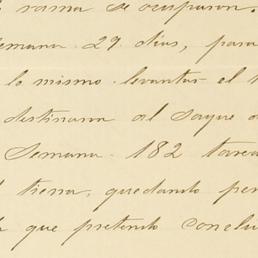 rama se ocuparon.
semana 29 dias, para
lo mismo levantar el
destinara al saque
Semana 182 tarea
tierra, quedando pen
que pretendo conclu